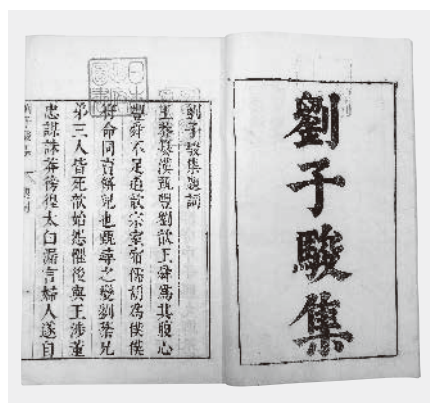 劉子駿集
劉子駿集題詞
王莽篡漢甄豐劉歆王舜爲其腹心
豐舜不足道歆宗室宿儒胡爲僕僕
符命同賣餅兒也甄尋之變劉棻兄
弟三人皆死歆始怨懼後與王涉董
忠謀誅莽傍徨太白漏言婦人遂自